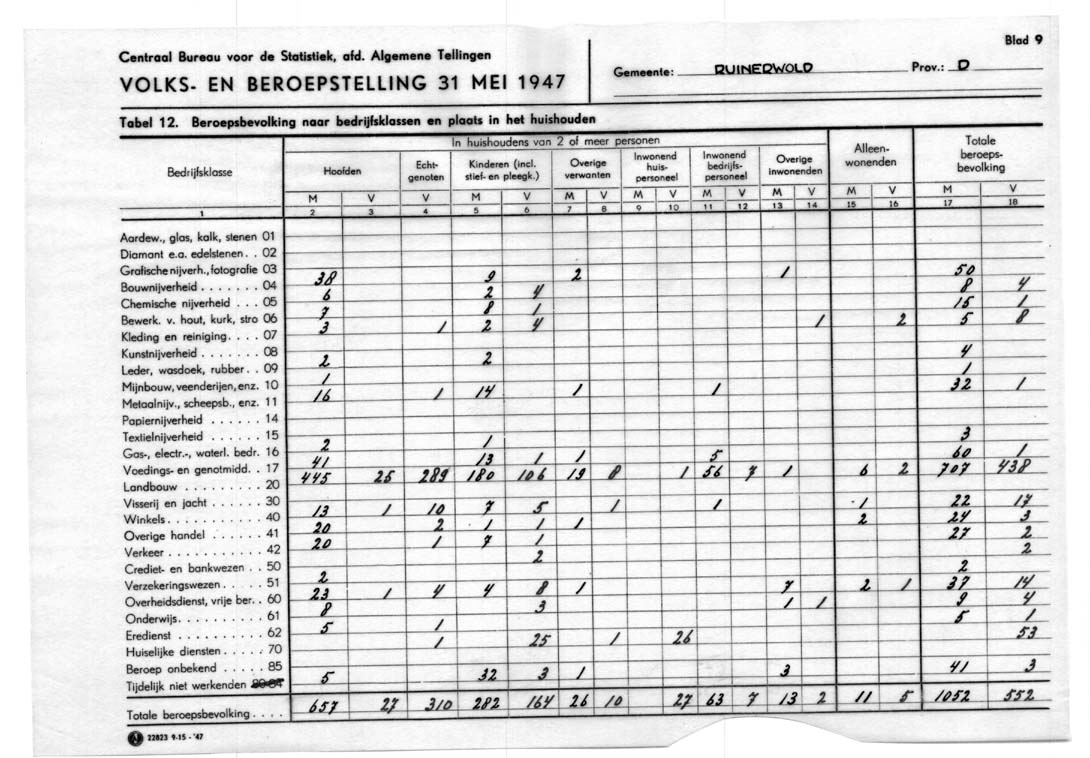 Blad 9
Centraal Bureau voor de Statistiek, afd. Algemene Tellingen
VOLKS- EN BEROEPSTELLING 31 MEI 1947
Gemeente: RUINERWOLD Prov.: D
Tabel 12. Beroepsbevolking naar bedrijfsklassen en plaats in het huishouden
Bedrijfsklasse
In huishoudens van 2 of meer personen
Hoofden
Echtgenoten
Kinderen (incl. stief- en pleegk.)
Overige verwanten
Inwonend huispersoneel
Inwonend bedrijfspersoneel
Overige inwonenden
Alleenwonenden
Totale beroepsbevolking
M V V M V M V M V M V M V M V M V
1 2 3 4 5 6 7 8 9 10 11 12 13 14 15 16 17 18
Aardew., glas, kalk, stenen 01
Diamant e.a. edelstenen . . 02
Grafische nijverh., fotografie 03
Bouwnijverheid . . . . . . . 04 38 9 2 1 50
Chemische nijverheid . . . 05 6 2 4 8 4
Bewerk. v. hout, kurk, stro 06 7 8 1 15 1
Kleding en reiniging. . . . 07 3 1 2 4 1 2 5 8
Kunstnijverheid . . . . . . . 08
Leder, wasdoek, rubber. . 09 2 2 4
Mijnbouw, veenderijen, enz. 10 1 1
Metaalnijv., scheepsb., enz. 11 16 1 14 1 1 32 1
Papiernijverheid . . . . . . 14
Textielnijverheid . . . . . . 15
Gas-, electr.-, waterl. bedr. 16 2 1 3
Voedings- en genotmidd. . 17 41 13 1 1 5 60 1
Landbouw . . . . . . . . . 20 445 25 289 180 106 19 8 1 56 7 1 6 2 707 438
Visserij en jacht . . . . . . 30
Winkels . . . . . . . . . . . 40 13 1 10 7 5 1 1 1 22 17
Overige handel . . . . . . 41 20 2 1 1 1 2 24 3
Verkeer . . . . . . . . . . . 42 20 1 7 1 27 2
Crediet- en bankwezen . . 50 2 2
Verzekeringswezen. . . . . 51 2 2
Overheidsdienst, vrije ber. . 60 23 1 4 4 8 1 7 2 1 37 14
Onderwijs. . . . . . . . . . 61 8 3 1 1 9 4
Eredienst . . . . . . . . . . 62 5 1 5 1
Huiselijke diensten . . . . . 70 1 25 1 26 53
Beroep onbekend . . . . . 85
Tijdelijk niet werkenden 80-84 5 32 3 1 3 41 3
Totale beroepsbevolking . . . . 657 27 310 282 164 26 10 27 63 7 13 2 11 5 1052 552
22823 9-15-'47